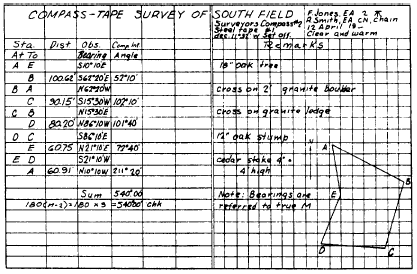 COMPASS-TAPE SURVEY OF SOUTH FIELD
F Jones, EA 2
Surveyors Compass #2
R Smith, EA CN, Chain
Steel tape
12 April 19-
dec. 11°32' W Set off.
Clear and warm
Sta. Dist Obs. Comp. Int Remarks
At To Bearing Angle
A E S10°10'E 18" oak tree
B 100.62' S62°20'E 52°10'
B A N62°20'W cross on 2' granite boulder
C 90.15' S15°30'W 102°10'
C B N15°30'E cross on granite ledge
D 80.20' N86°10'W 101°40'
D C S86°10'E 12" oak stump
E 60.75 N21°10'E 72°40'
E D S21°10'W cedar stake 4"
A 60.91' N10°10'W 211°20' 4' high
Sum 540°00' Note: Bearings are
180(n-2)=180 x 3 = 540°00' chk referred to true M
A
B
E
D
C